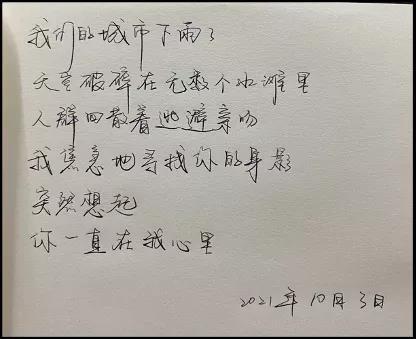 我们的城市下雨了
天空破碎在无数个水滩里
人群四散着逃避亲吻
我焦急地寻找你的身影
突然想起
你一直在我心里
2021年10月3日